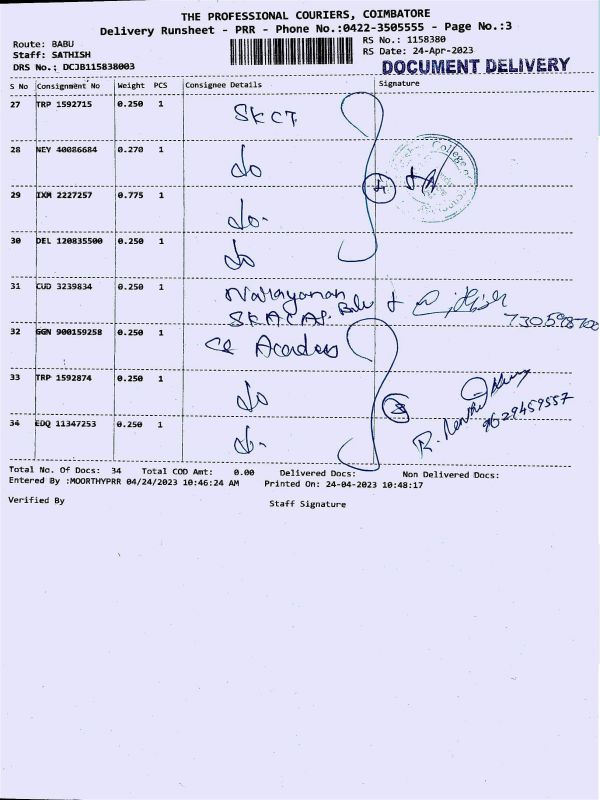 THE PROFESSIONAL COURIERS, COIMBATORE
Delivery Runsheet - PRR - Phone No.:0422-3505555 - Page No.:3
Route: BABU
Staff: SATHISH
DRS No.: DCJB115838003
RS No.: 1158380
RS Date: 24-Apr-2023
DOCUMENT DELIVERY
S No Consignment No Weight PCS Consignee Details Signature
27 TRP 1592715 0.250 1 SKCT
28 NEY 40086684 0.270 1 do
College of
29 IXM 2227257 0.775 1 do
30 DEL 120835500 0.250 1 do
31 CUD 3239834 0.250 1 Narayanan
SKACAS.
32 GGN 900159258 0.250 1
33 TRP 1592874 0.250 1 do
R.
9629459557
34 EDQ 11347253 0.250 1 do
Total No. Of Docs: 34 Total COD Amt: 0.00 Delivered Docs: Non Delivered Docs:
Entered By :MOORTHYPRR 04/24/2023 10:46:24 AM Printed On: 24-04-2023 10:48:17
Verified By Staff Signature